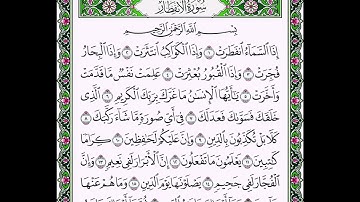 سُورَةُ الانفِطَارِ
بِسْمِ اللَّهِ الرَّحْمَٰنِ الرَّحِيمِ
إِذَا السَّمَاءُ انفَطَرَتْ ١ وَإِذَا الْكَوَاكِبُ انتَثَرَتْ ٢ وَإِذَا الْبِحَارُ
فُجِّرَتْ ٣ وَإِذَا الْقُبُورُ بُعْثِرَتْ ٤ عَلِمَتْ نَفْسٌ مَّا قَدَّمَتْ
وَأَخَّرَتْ ٥ يَا أَيُّهَا الْإِنسَانُ مَا غَرَّكَ بِرَبِّكَ الْكَرِيمِ ٦ الَّذِي
خَلَقَكَ فَسَوَّاكَ فَعَدَلَكَ ٧ فِي أَيِّ صُورَةٍ مَّا شَاءَ رَكَّبَكَ ٨
كَلَّا بَلْ تُكَذِّبُونَ بِالدِّينِ ٩ وَإِنَّ عَلَيْكُمْ لَحَافِظِينَ ١٠ كِرَامًا
كَاتِبِينَ ١١ يَعْلَمُونَ مَا تَفْعَلُونَ ١٢ إِنَّ الْأَبْرَارَ لَفِي نَعِيمٍ ١٣ وَإِنَّ
الْفُجَّارَ لَفِي جَحِيمٍ ١٤ يَصْلَوْنَهَا يَوْمَ الدِّينِ ١٥ وَمَا هُمْ عَنْهَا